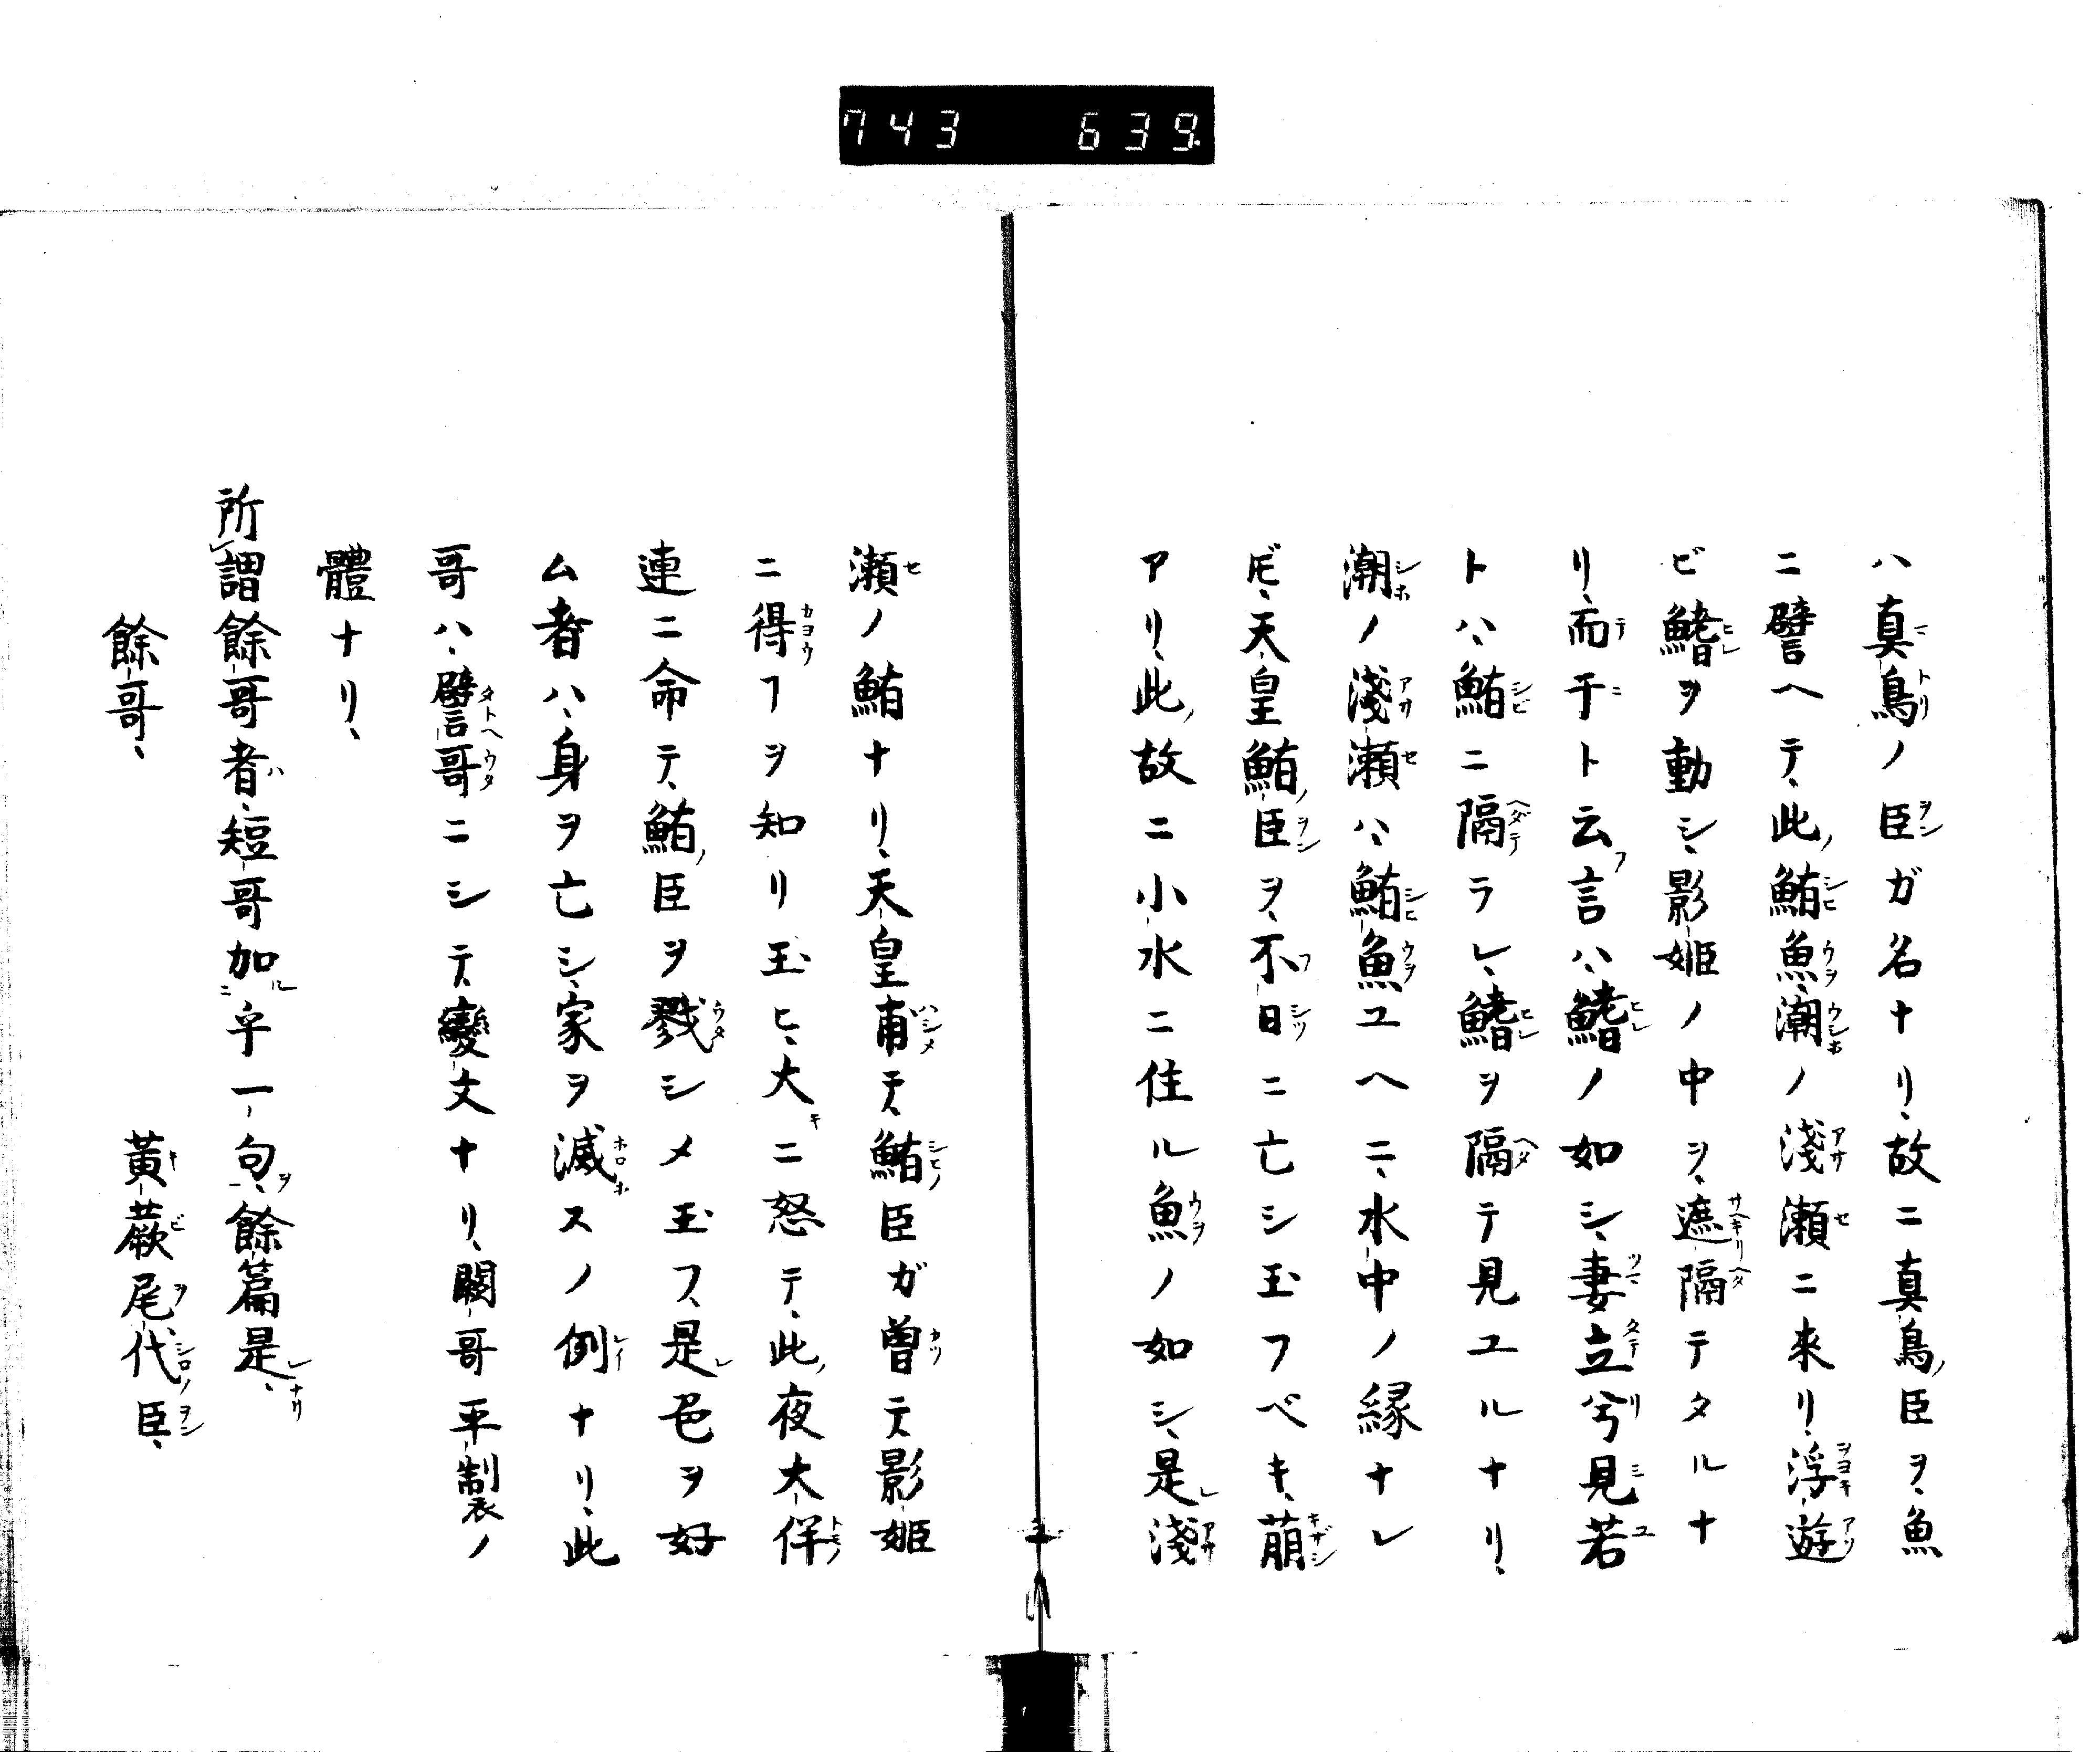 743 639
ハ真鳥ノ臣ガ名ナリ、故ニ真鳥ノ臣ヲ、魚
ニ譬ヘテ、此ノ鮪魚、潮ノ淺瀬ニ来リ、浮遊
ビ鰭ヲ動シ、影姫ノ中ヲ、遮隔テタルナ
リ、而于ト云フ言ハ、鰭ノ如シ、妻立兮見若
トハ、鮪ニ隔ラレ、鰭ヲ隔テ見ユルナリ、
潮ノ淺瀬ハ、鮪魚ユヘニ、水中ノ縁ナレ
𪜈、天皇鮪ノ臣ヲ、不日ニ亡シ玉フベキ、萠
アリ、此ノ故ニ小水ニ住ル魚ノ如シ、是レ淺
瀬ノ鮪ナリ、天皇甫テ、鮪臣ガ曽テ影姫
ニ得フヲ知リ玉ヒ、大キニ怒テ、此ノ夜大伴
連ニ命テ、鮪ノ臣ヲ戮シメ玉フ、是レ色ヲ好
ム者ハ、身ヲ亡シ、家ヲ滅スノ例ナリ、此
哥ハ、譬哥ニシテ、變文ナリ、閼哥平製ノ
體ナリ、
所レ謂餘哥者ハ、短哥加ルニ乎一句ヲ、餘篇是レナリ、
餘哥、 黃蕨尾代臣、